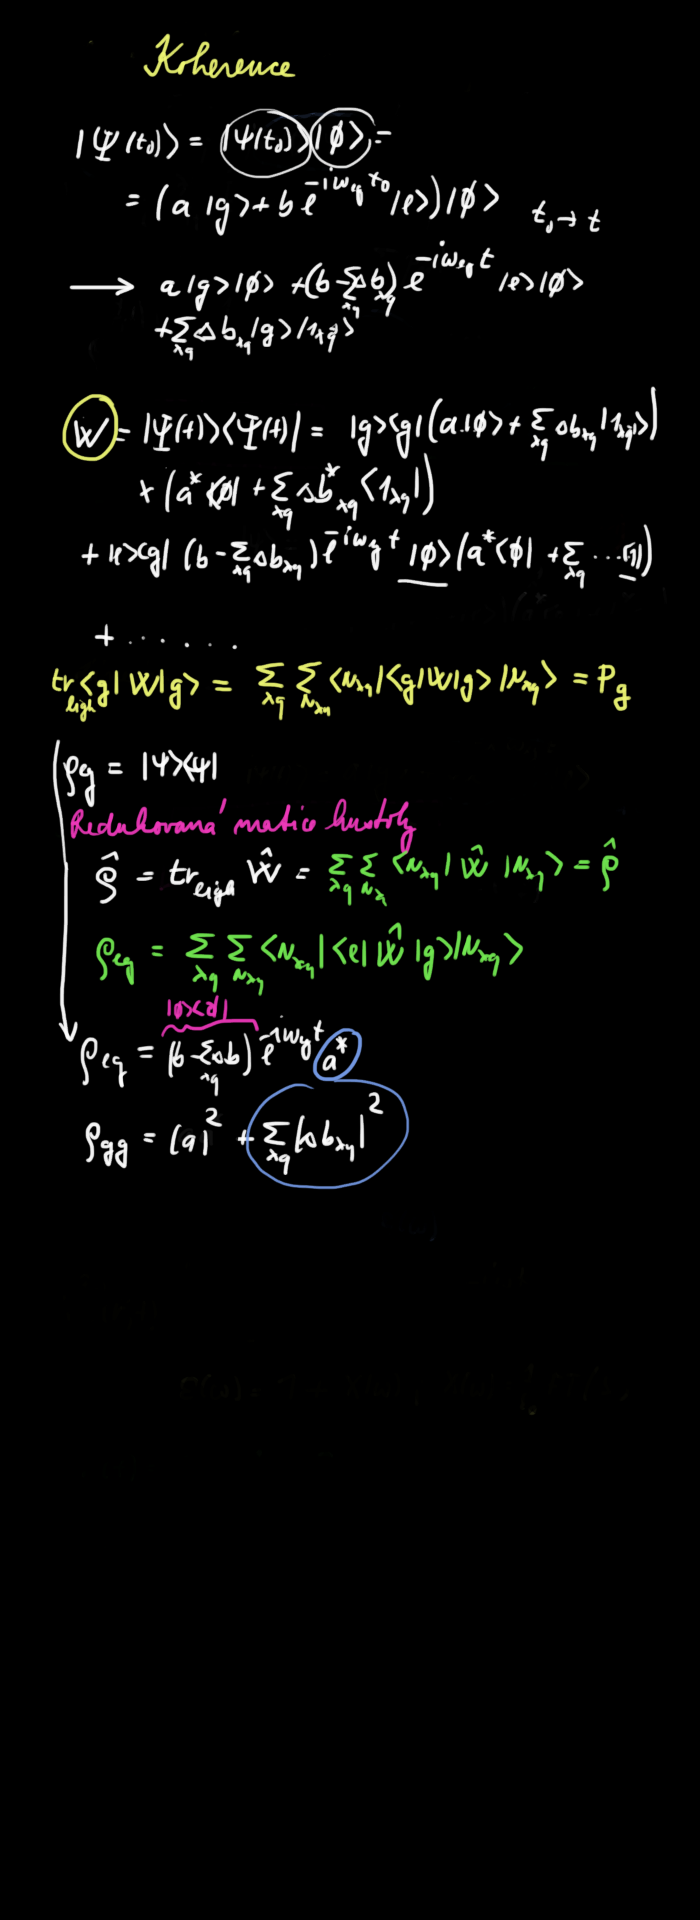 Koherence
|Ψ(t₀)⟩ = |ψ(t₀)⟩|ϕ⟩ =
= (a |g⟩ + b e^{-iω_{eg} t₀} |e⟩)|ϕ⟩ t₀ → t
⟶ a|g⟩|ϕ⟩ + (b - Σ_{λq} Δb_{λq}) e^{-iω_{eg} t} |e⟩|ϕ⟩
+ Σ_{λq} Δb_{λq} |g⟩|1_{λq}⟩
W = |Ψ(t)⟩⟨Ψ(t)| = |g⟩⟨g| (a |ϕ⟩ + Σ_{λq} Δb_{λq} |1_{λq}⟩)
× (a* ⟨ϕ| + Σ_{λq} Δb*_{λq} ⟨1_{λq}|)
+ |e⟩⟨g| (b - Σ_{λq} Δb_{λq}) e^{-iω_{eg} t} |ϕ⟩ (a* ⟨ϕ| + Σ_{λq} ... ⟨1|)
+ . . . . . .
tr_{light} ⟨g| W |g⟩ = Σ_{λq} Σ_{N_{λq}} ⟨N_{λq}| ⟨g| W |g⟩ |N_{λq}⟩ = P_g
ρ_{eg} = |ψ⟩⟨ψ|
Redukovaná matice hustoty
ρ̂ = tr_{light} Ŵ = Σ_{λq} Σ_{N_λ} ⟨N_{λq}| Ŵ |N_{λq}⟩ = ρ̂
ρ_{eg} = Σ_{λq} Σ_{N_{λq}} ⟨N_{λq}| ⟨e| Ŵ |g⟩ |N_{λq}⟩
|ϕ⟩⟨ϕ|
ρ_{eg} = (b - Σ_{λq} Δb) e^{-iω_{eg} t} a*
ρ_{gg} = |a|² + Σ_{λq} |Δb_{λq}|²